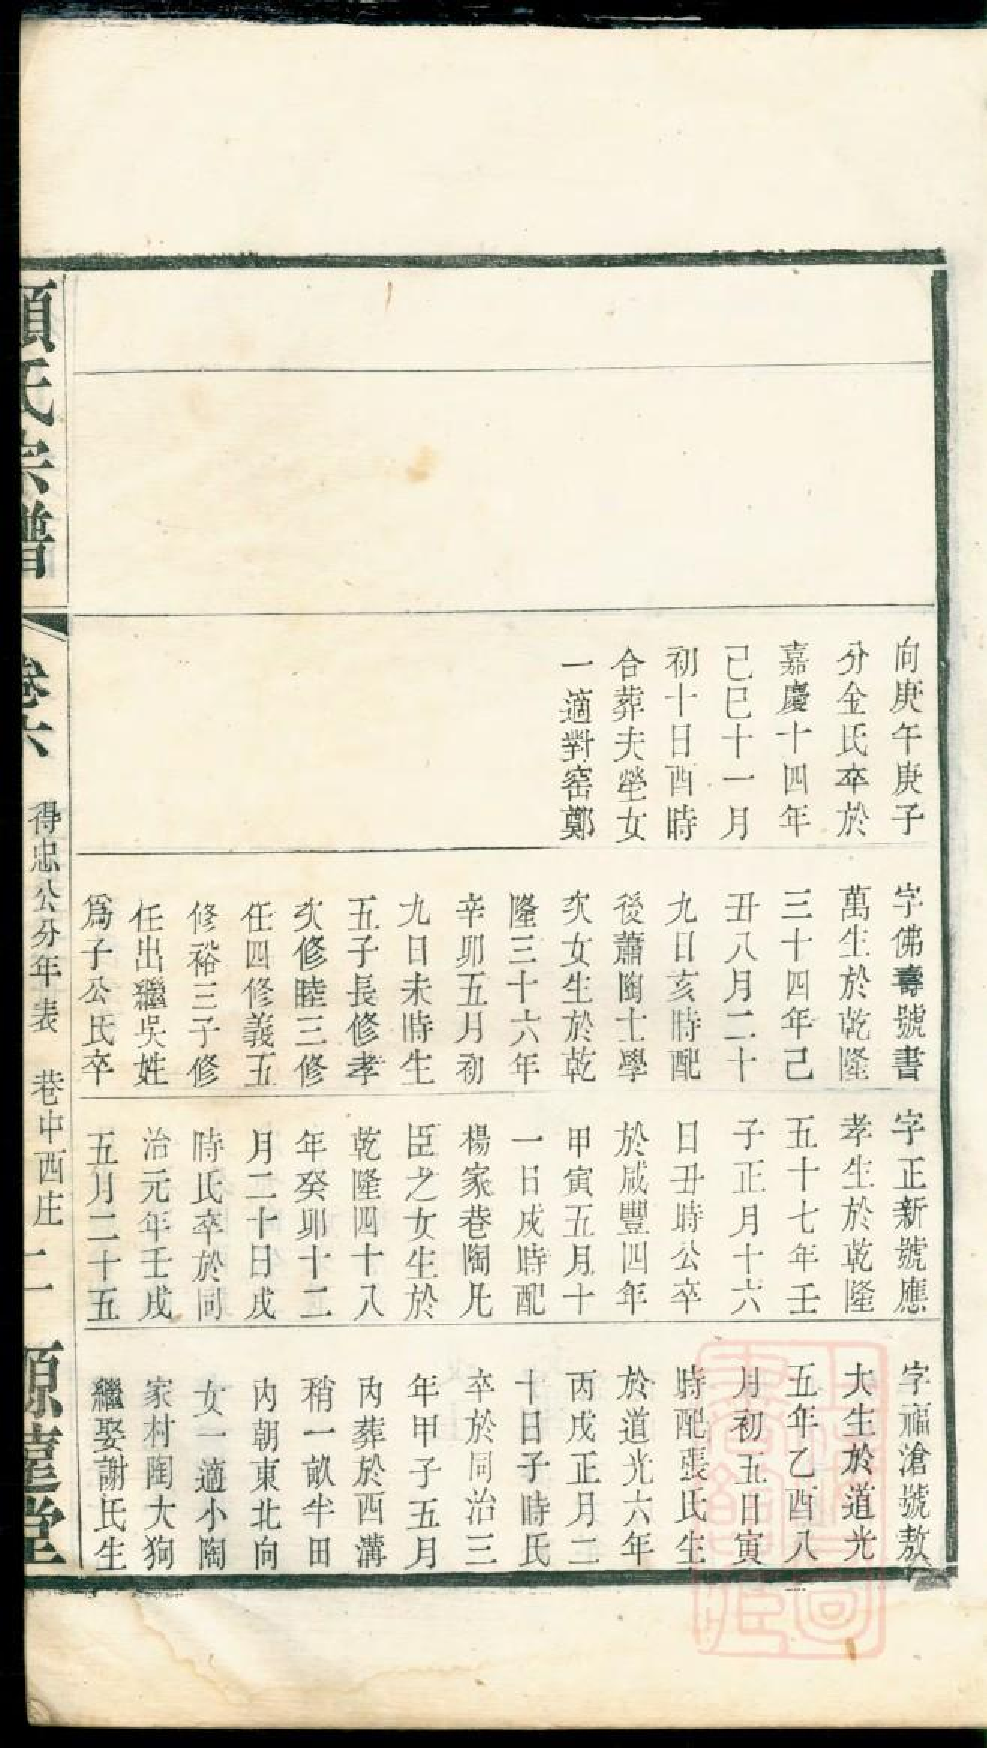 向庚午庚子
分金氏卒於
嘉慶十四年
己巳十一月
初十日酉時
合葬夫塋女
一適對窑鄭
字佛壽號書
萬生於乾隆
三十四年己
丑八月二十
九日亥時配
後蕭陶士學
次女生於乾
隆三十六年
辛卯五月初
九日未時生
五子長修孝
次修睦三修
任四修義五
修裕三子修
任出繼吳姓
為子公氏卒
字正新號應
孝生於乾隆
五十七年壬
子正月十六
日丑時公卒
於咸豐四年
甲寅五月十
一日戌時配
楊家巷陶凡
臣之女生於
乾隆四十八
年癸卯十二
月二十日戌
時氏卒於同
治元年壬戌
五月二十五
字福滄號敖
大生於道光
五年乙酉八
月初五日寅
時配張氏生
於道光六年
丙戌正月二
十日子時氏
卒於同治三
年甲子五月
內葬於西溝
稍一畝半田
內朝東北向
女一適小陶
家村陶大狗
繼娶謝氏生
氏宗譜
卷六
得忠公分年表
巷中西庄
二
堂